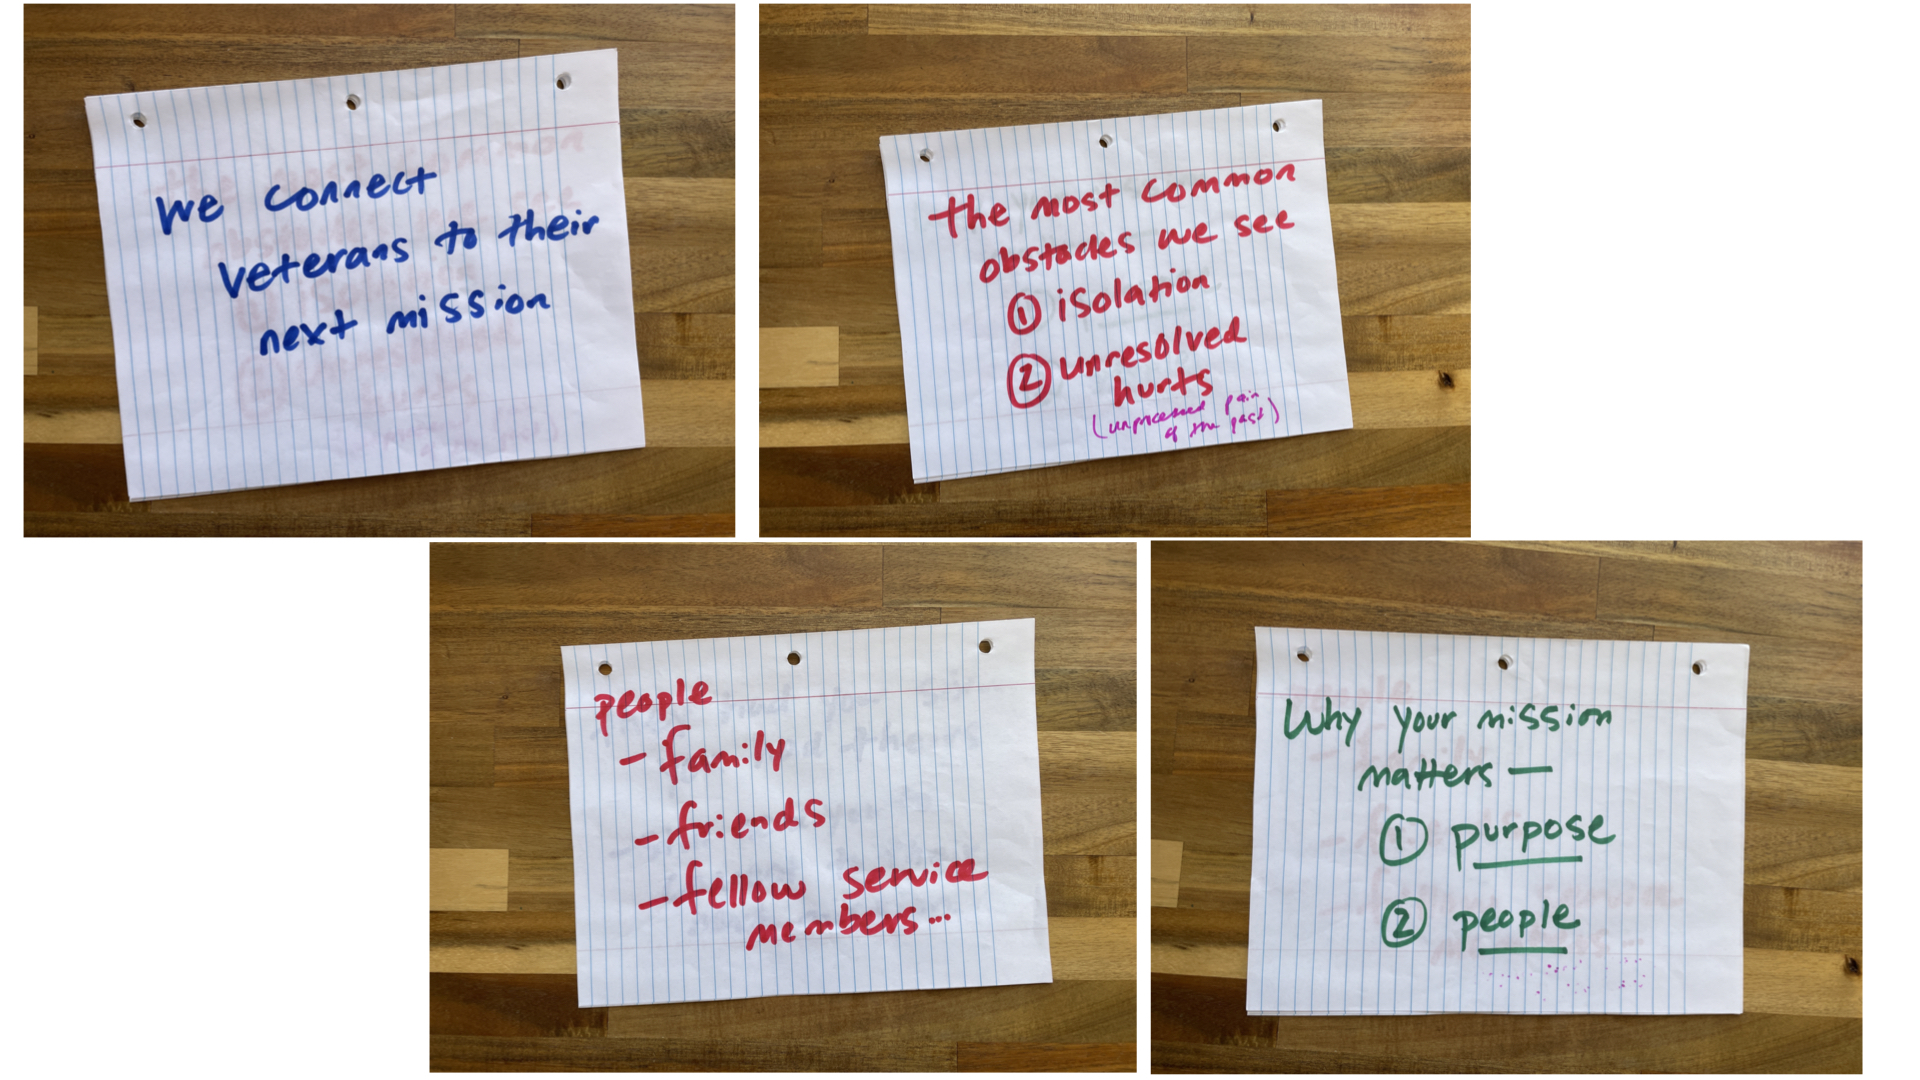 We connect
veterans to their
next mission
The most common
obstacles we see
① isolation
② unresolved
hurts
(unprocessed pain
of the past)
people
- family
- friends
- fellow service
members...
Why your mission
matters —
① purpose
② people